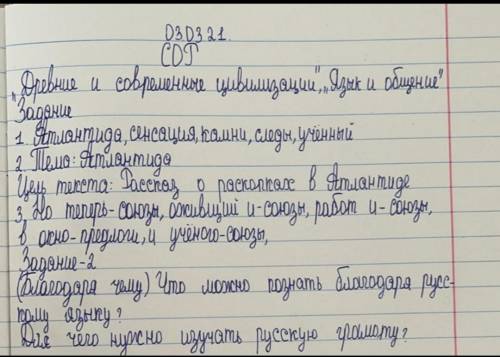 030321.
СОГ
„Древние и современные цивилизации", „Язык и общение"
Задание
1 Атлантида, сенсация, камни, следы, учённый
2 Тема: Атлантида
Цель текста: Рассказ о раскопках в Атлантиде
3. Но теперь-союзы, оживщий и-союзы, работ и-союзы,
в окно-предлоги, и учёного-союзы,
Задание-2
(Благодаря чему) Что можно познать благодара русс-
кому языку?
Для чего нужно изучать русскую громоту?